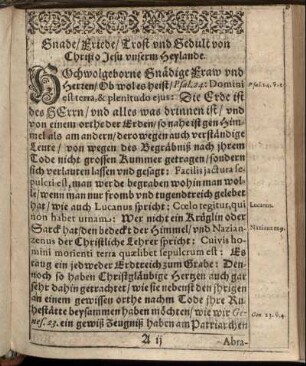 Gnade/ Friede/ Trost vnd Gedult von
Christo Jesu vnserm Heylande.
HOchwolgeborne Gnädige Fraw vnd
Herren/ Ob wol es heist/ Psal. 24: Domini
est terra, & plenitudo ejus: Die Erde ist
des HErrn/ vnd alles was drinnen ist/ vnd
von einem orthe der Erden/ so nahe ist gen Him-
mel als am andern/ derowegen auch verständige
Leute/ von wegen des Begräbniß nach jhrem
Tode nicht grossen Kummer getragen/ sondern
sich verlauten lassen vnd gesagt: Facilis jactura se-
pulcri est, man werde begraben wohin man wol-
le/ wenn man nur fromb vnd tugendreich gelebet
hat/ wie auch Lucanus spricht: Coelo tegitur, qui
non habet urnam: Wer nicht ein Krüglin oder
Sarck hat/ den bedeckt der Himmel/ vnd Nazian-
zenus der Christliche Lehrer spricht: Cuivis ho-
mini morienti terra quælibet sepulcrum est: Es
taug ein jedweder Erdtreich zum Grabe: Den-
noch so haben Christgläubige Hertzen auch gar
sehr dahin getrachtet/ wie sie nebenst den jhrigen
an einem gewissen orthe nachm Tode jhre Ru-
hestätte beysammen haben möchten/ wie wir Ge-
nes. 23. ein gewiß Zeugniß haben am Patriarchen
A ij
Abra-
Psal. 24. v. 1.
Lucanus.
Gen 23. v. 4.